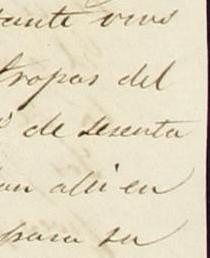 tante vivo
tropas del
de sesenta
an ali en
para su